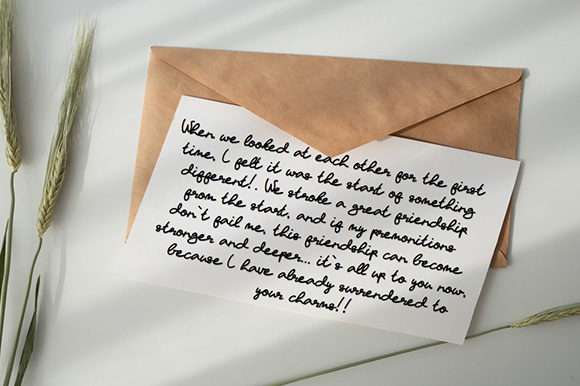 When we looked at each other for the first
time, I felt it was the start of something
different!. We stroke a great friendship
from the start, and if my premonitions
don`t fail me, this friendship can become
stronger and deeper... it`s all up to you now,
because I have already surrendered to
your charms!!